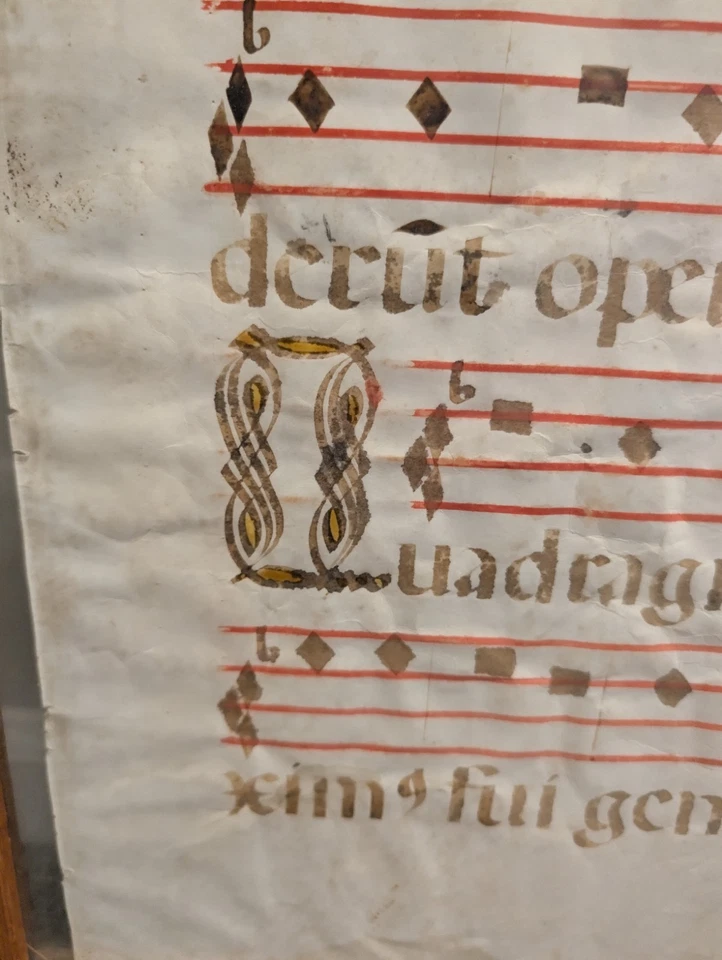 derūt oper
Quadragi
ximꝰ fui gen